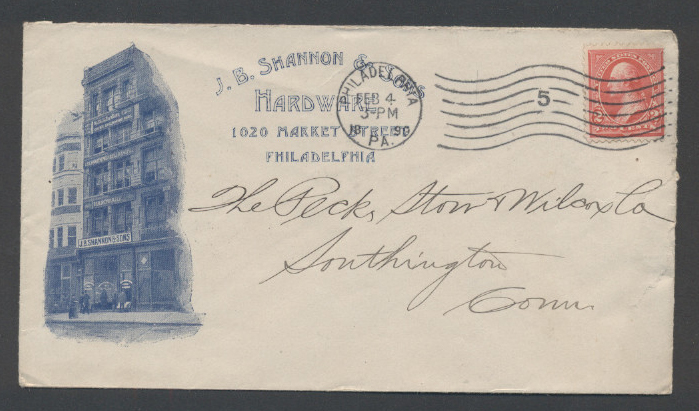 J. B. SHANNON & SONS
HARDWARE
1020 MARKET STREET
PHILADELPHIA
PHILADELPHIA
FEB 4
3-PM
PA.
5
The Peck, Stow & Wilcox Co
Southington
Conn.
J.B. SHANNON & SONS